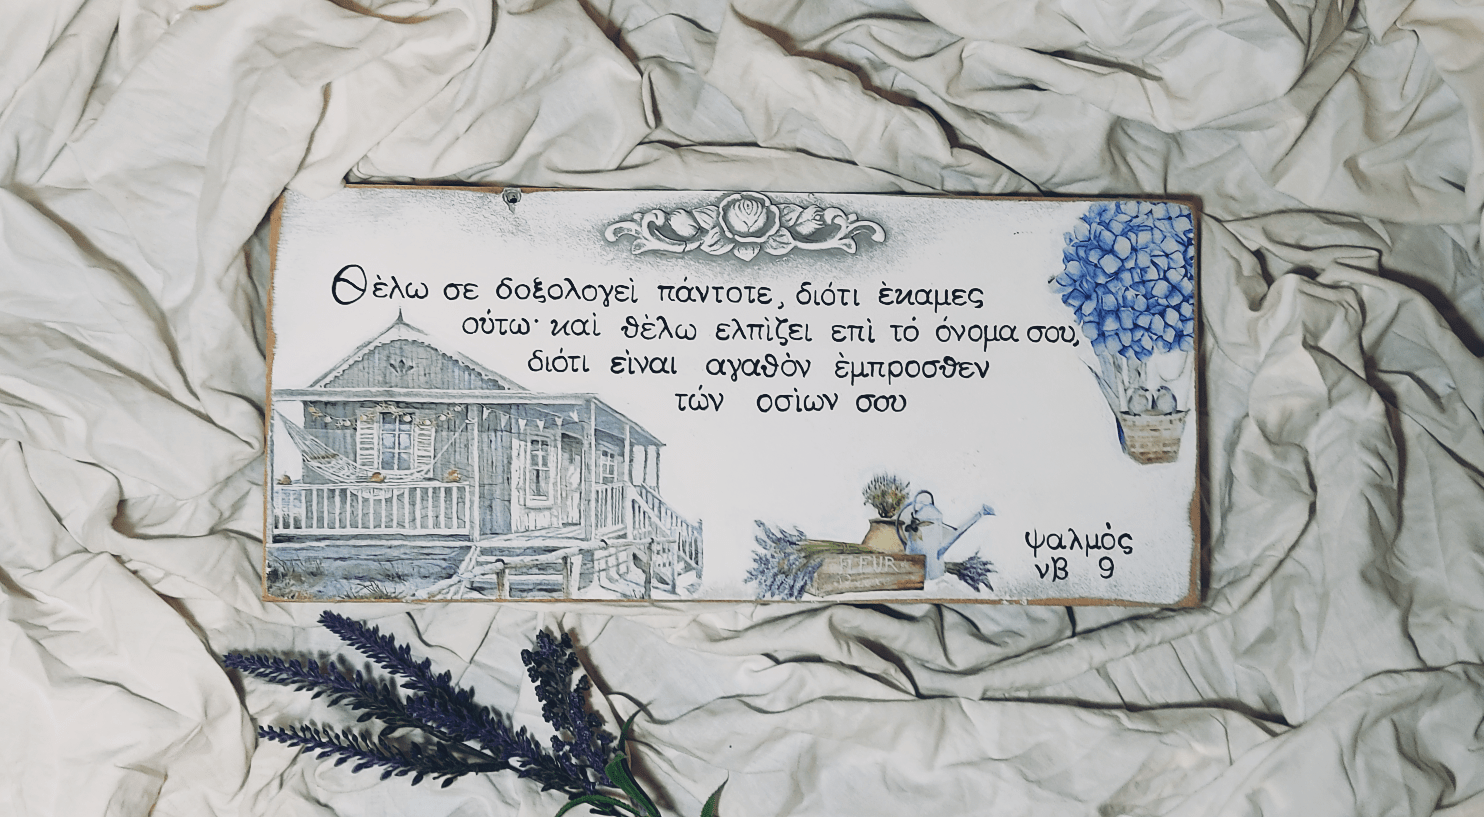 Θὲλω σε δοξολογεὶ πάντοτε, διότι ὲκαμες
ούτω· καὶ θὲλω ελπὶζει επὶ τό όνομα σου,
διότι εὶναι αγαθὸν ὲμπροσθεν
τών οσὶων σου
FLEUR
ψαλμὸς
νβ 9